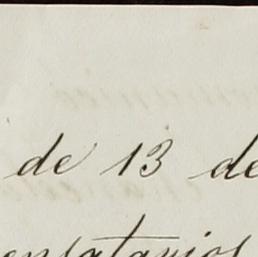 de 13 de
ensatarios